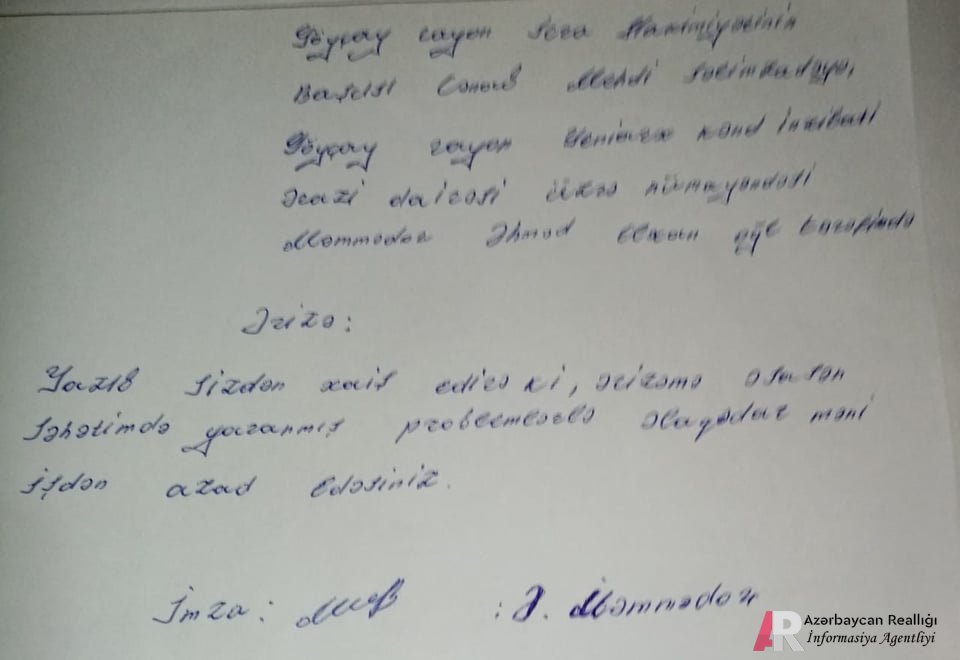 Göyçay rayon İcra Hakimiyyətinin
Başçısı Cənab Mehdi Səlimzadəyə,
Göyçay rayon kənd inzibati
ərazi dairəsi üzrə nümayəndəsi
Məmmədov Əhməd oğlu tərəfində
Ərizə:
Yazıb sizdən xaiş edirə ki, ərizəmə əsasən
səhətimdə yaranmış problemlərlə əlaqədar məni
işdən azad edəsiniz.
İmza: : Ə. Məmmədov
AR Azərbaycan Reallığı
İnformasiya Agentliyi